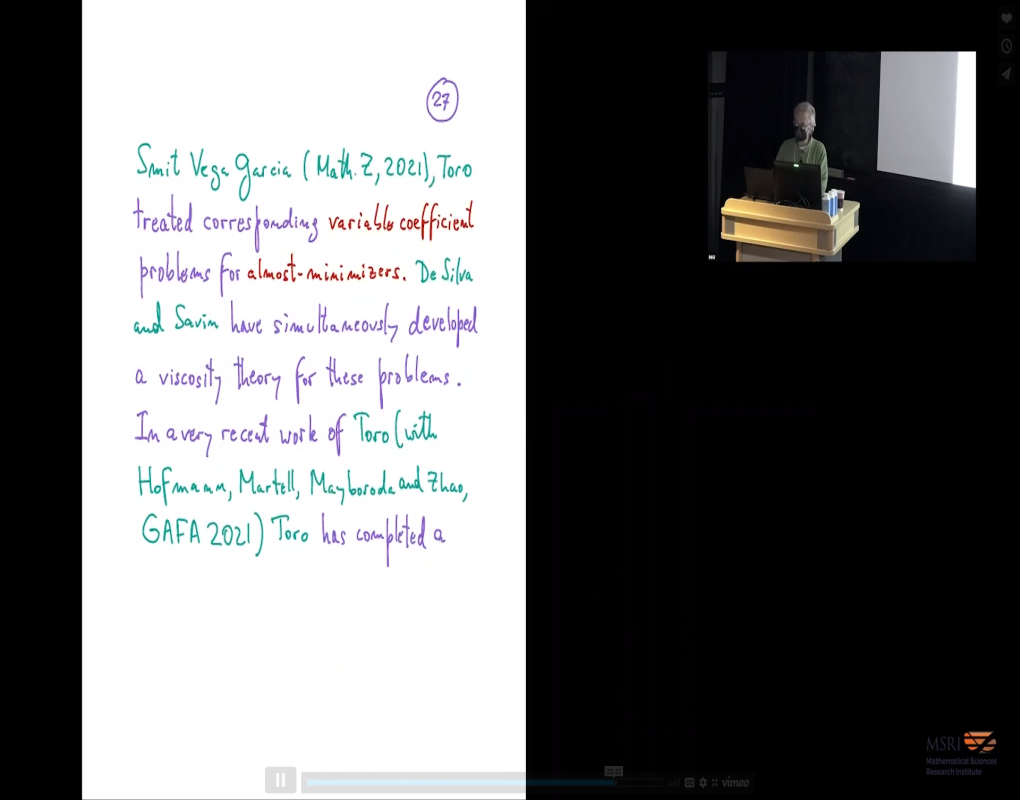 27
Smit Vega Garcia (Math. Z, 2021), Toro
treated corresponding variable coefficient
problems for almost-minimizers. De Silva
and Savin have simultaneously developed
a viscosity theory for these problems.
In a very recent work of Toro (with
Hofmann, Martell, Mayboroda and Zhao,
GAFA 2021) Toro has completed a
MSRI
Mathematical Sciences
Research Institute
vimeo